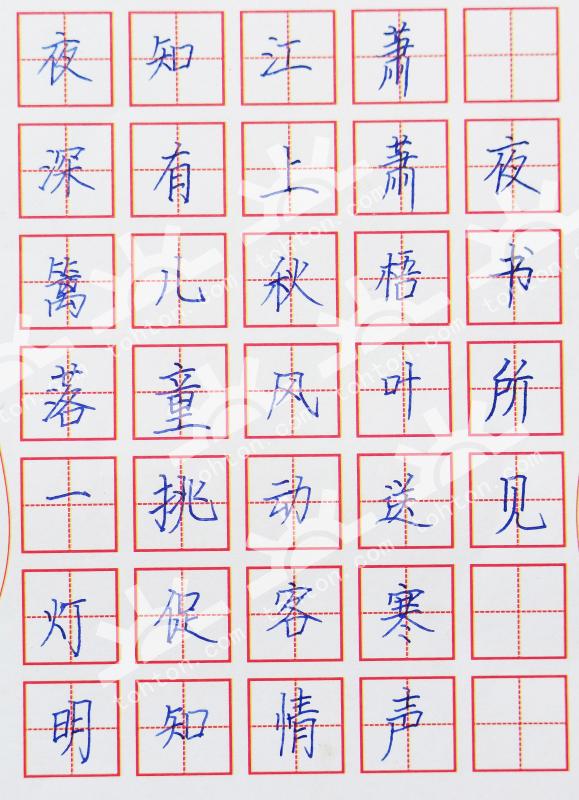 夜书所见
萧萧梧叶送寒声
江上秋风动客情
知有儿童挑促知
夜深篱落一灯明
tohton.com